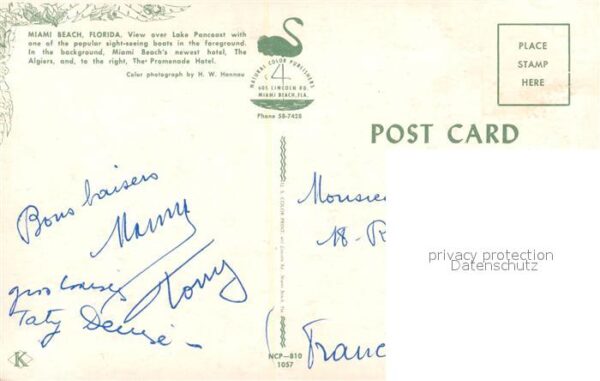 MIAMI BEACH, FLORIDA. View over Lake Pancoast with
one of the popular sight-seeing boats in the foreground.
In the background, Miami Beach's newest hotel, The
Algiers, and, to the right, The Promenade Hotel.
Color photograph by H. W. Hannau
NATURAL COLOR PUBLISHERS
4
605 LINCOLN RD.
MIAMI BEACH, FLA.
Phone 58-7428
PLACE
STAMP
HERE
POST CARD
Bons baisers
gros baisers
Tony
Taty Denise
Monsie
18-R
Franc
privacy protection
Datenschutz
K
NCP-810
1057